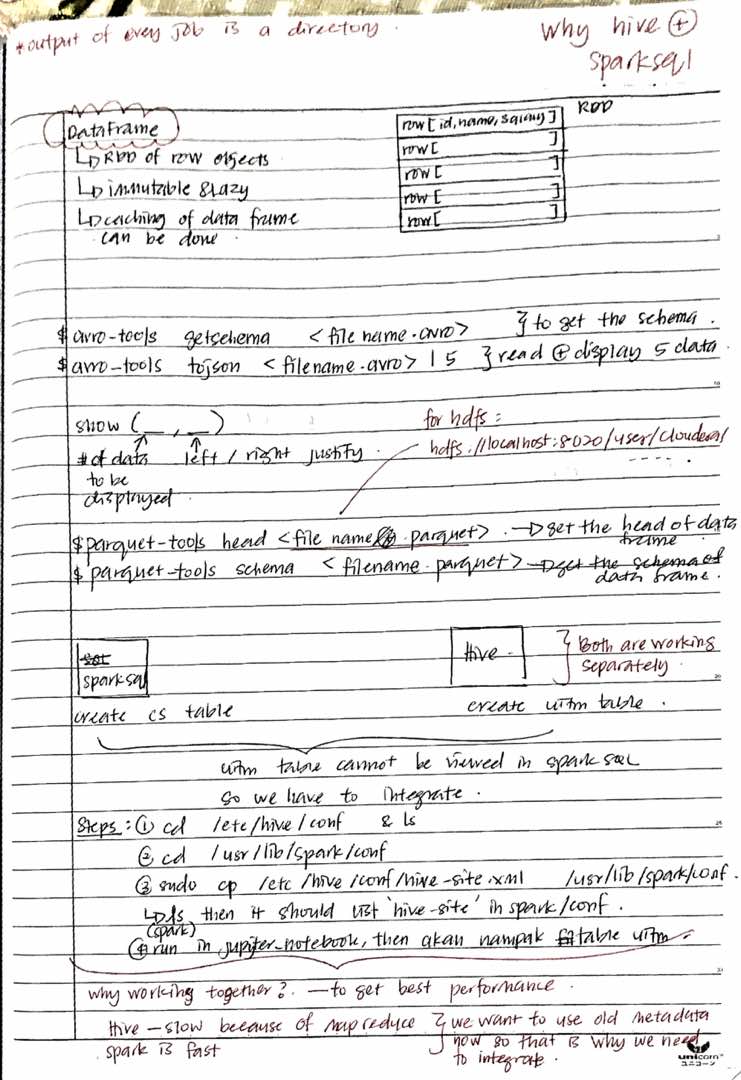 *output of every job is a directory.
why hive ⊕
sparksql
DataFrame
RDD
↳ RDD of row objects
↳ immutable & lazy
↳ caching of data frame
can be done.
row[id, name, salary]
row[ ]
row[ ]
row[ ]
row[ ]
$ avro-tools getschema <file name.avro> } to get the schema.
$ avro-tools tojson <filename.avro> | 5 } read ⊕ display 5 data.
show (__, __)
# of data left / right justify.
to be
displayed.
for hdfs:
hdfs://localhost:8020/user/cloudera/
$ parquet-tools head <file name.parquet>. → get the head of data
frame
$ parquet-tools schema <filename.parquet> → get the schema of
data frame.
sql
sparksql
Hive.
} Both are working
separately.
create cs table
create uitm table.
uitm table cannot be viewed in spark SQL
so we have to integrate.
Steps: ① cd /etc/hive/conf & ls
② cd /usr/lib/spark/conf
③ sudo cp /etc/hive/conf/hive-site.xml /usr/lib/spark/conf.
↳ ls then it should list 'hive-site' in spark/conf.
(spark)
④ run in jupiter-notebook, then akan nampak table uitm.
why working together? — to get best performance.
Hive — slow because of mapreduce } we want to use old metadata
spark is fast
now so that is why we need
to integrate.
unicorn
ユニコーン